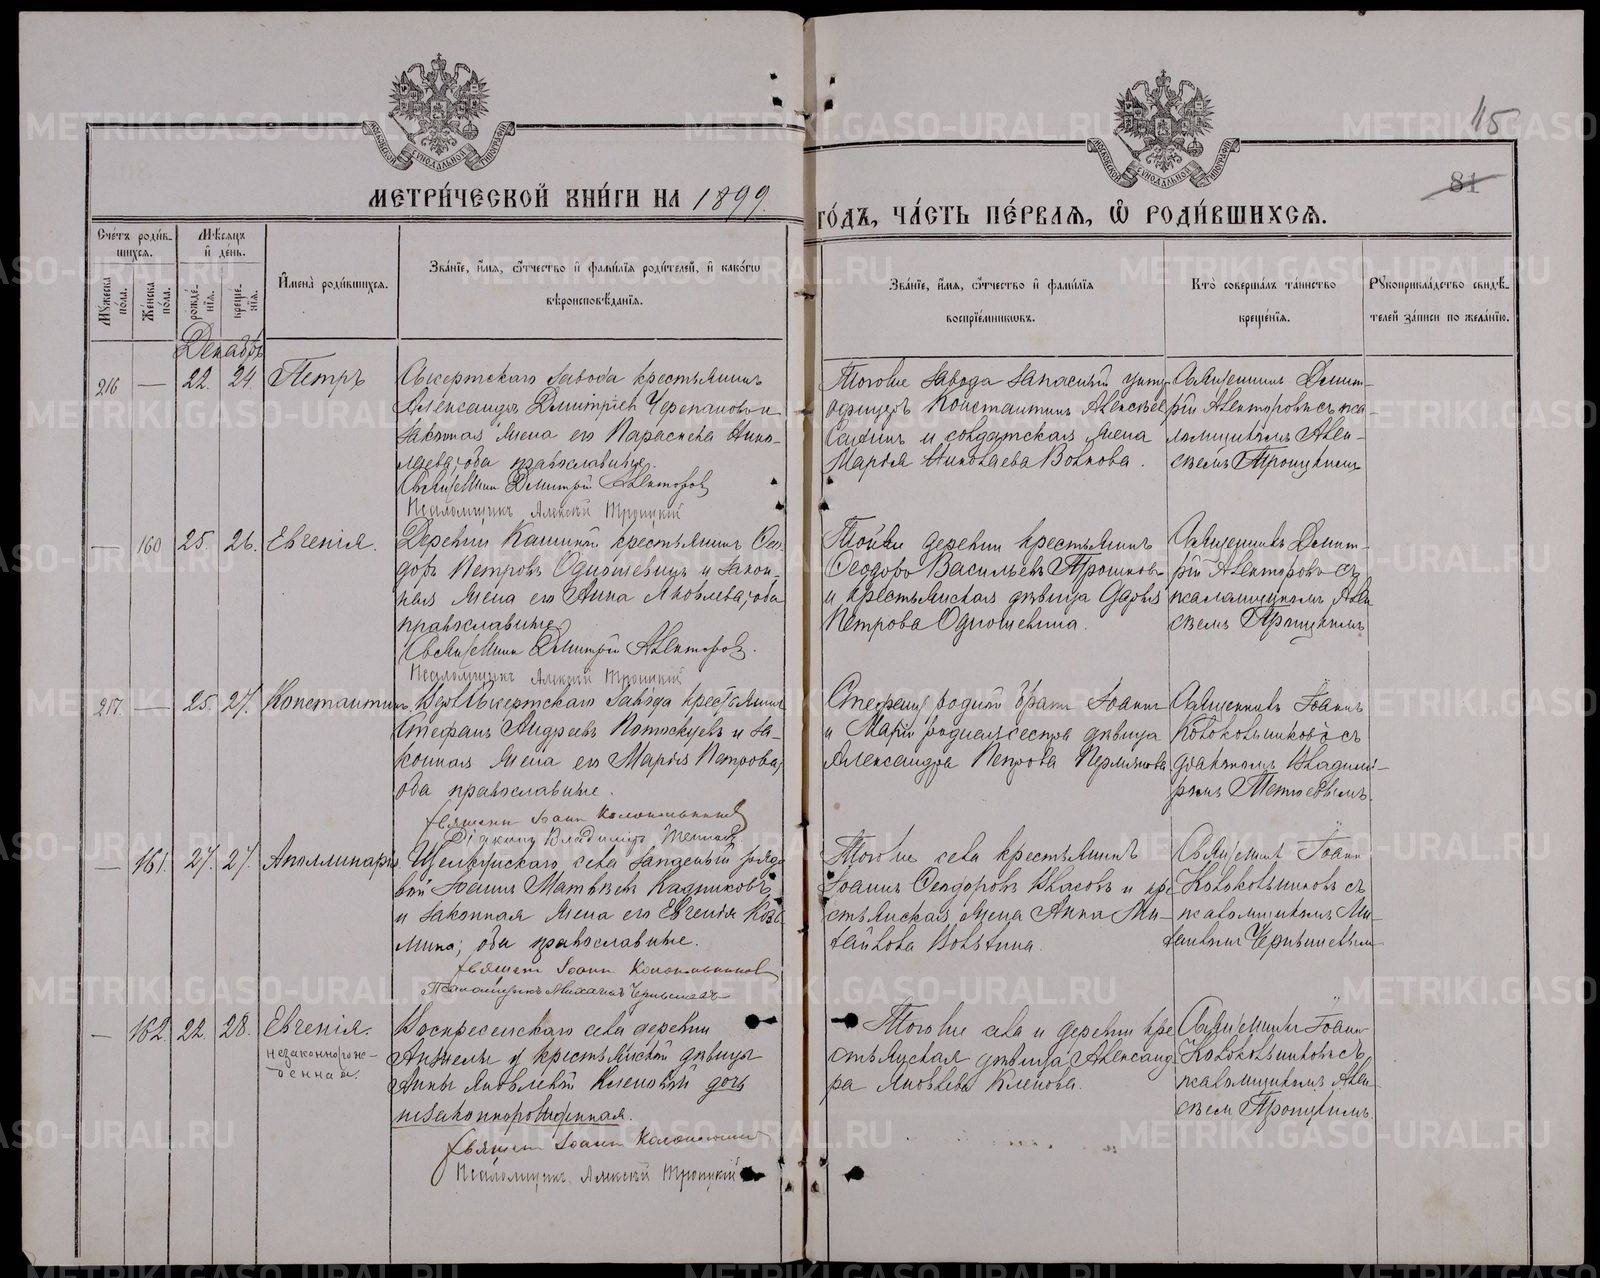 115
81
МОСКОВСКОЙ СѴНОДАЛЬНОЙ ТИПОГРАФІИ
МОСКОВСКОЙ СѴНОДАЛЬНОЙ ТИПОГРАФІИ
МЕТРИ́ЧЕСКОЙ КНИ́ГИ НА 1899.
ГО́ДЪ, ЧА́СТЬ ПЕ́РВАѦ, Ѡ҆ РОДИ́ВШИХСѦ.
Сче́тъ роди́в-
шихся.
Мѣ́сяцъ
и҆ де́нь.
Мꙋ́жеска
по́ла.
Же́нска
по́ла.
рожде́-
нїѧ.
креще́-
нїѧ.
И҆мена̀ роди́вшихся.
Зва́нїе, и҆́мѧ, ѻ҆́тчество и҆ фами́лїѧ роди́телей, и҆ како́гѡ
вѣроисповѣ́данїѧ.
Зва́нїе, и҆́мѧ, ѻ҆́тчество и҆ фами́лїѧ
воспрїе́мникѡвъ.
Кто̀ соверша́лъ та́инство
креще́нїѧ.
Рꙋкоприкла́дство свидѣ́-
телей за́писи по жела́нїю.
Декабрь
216 — 22. 24. Петръ
Сысертскаго завода крестьянинъ
Александръ Димитріевъ Черепановъ и
законная жена его Параскева Нико-
лаева; оба православные.
Священникъ Димитрій Авкторовъ
Псаломщикъ Алексѣй Троицкій
Того же завода запасный унтер
офицеръ Константинъ Алексѣев
и солдатская жена
Марія Николаева Волкова.
Священникъ Димит-
рій Авкторовъ съ пса-
ломщикомъ Алек-
сѣемъ Троицкимъ
— 160 25. 26. Евгенія.
Деревни Кашиной крестьянинъ Ѳео-
доръ Петровъ Одношевинъ и закон-
ная жена его Анна Яковлева; оба
православные
Священникъ Димитрій Авкторовъ.
Псаломщикъ Алексѣй Троицкій
Той же деревни крестьянинъ
Ѳеодоръ Васильевъ Трошковъ
и крестьянская дѣвица Дарья
Петрова Одношевина.
Священникъ Димит-
рій Авкторовъ съ
псаломщикомъ Алек
сѣемъ Троицкимъ
217. — 25. 27. Константинъ.
Сысертскаго завода крестьянинъ
Стефанъ Андреевъ Потоскуевъ и за-
конная жена его Марія Петрова;
оба православные.
священникъ Іоаннъ Колокольниковъ
Діаконъ Владиміръ
Стефану родной братъ Іоаннъ
и Маріи родная сестра дѣвица
Александра Петрова Пермякова
Священникъ Іоаннъ
Колокольниковъ съ
діакономъ Владимі-
ромъ
— 161. 27. 27. Аполлинарія.
Щелкунскаго села запасный рядо
вой Іоаннъ Матвѣевъ Кадниковъ
и законная жена его Евгенія Козь
мина; оба православные.
священ Іоаннъ Колокольниковъ
Псаломщикъ Михаилъ Чернышевъ
Того же села крестьянинъ
Іоаннъ Ѳеодоровъ Власовъ и кре
стьянская жена Анна Ми-
хайлова
Священникъ Іоаннъ
Колокольниковъ съ
псаломщикомъ Ми-
хаиломъ Чернышевым
— 162. 22. 28. Евгенія.
незаконнорож-
денная.
Воскресенскаго села деревни
у крестьянской дѣвицы
Анны Яковлевой Кленовой дочь
незаконнорожденная.
священ Іоаннъ Колокольник
Псаломщикъ Алексѣй Троицкій
Того же села и деревни кре
стьянская дѣвица Александ
ра Яковлева Кленова.
Священникъ Іоаннъ
Колокольниковъ съ
псаломщикомъ Алек
сѣем Троицкимъ.
METRIKI.GASO-URAL.RU